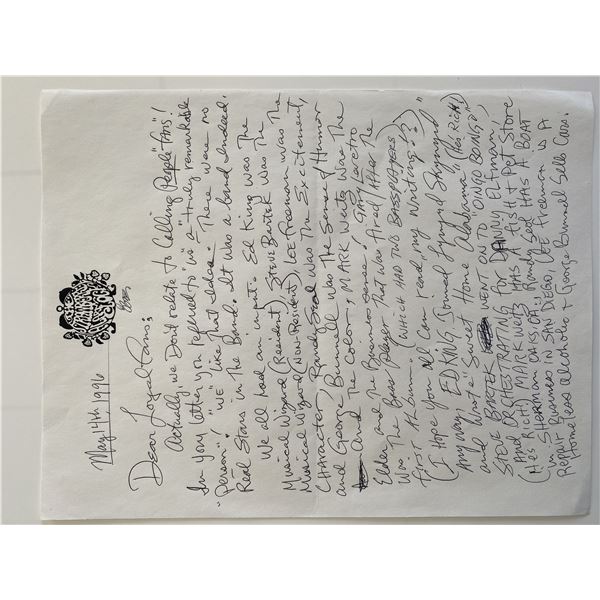 May 14th, 1996
Dear Loyal Fans:
Actually, we Don't relate to Calling People "Fans"!
In your letter you referred to "us" a "truly remarkable
"person"! "WE" like that Idea. There were no
Real Stars in The Band. It was a band Indeed.
We all had an input. Ed King was The
Musical Wizard (Resident), STEVE Bartek Was The
Musical Wizard (NON-Resident), LEE Freeman was The
Character, Randy Seol was The Excitement,
and George Bunnell was The Sense of Humor
And The Color, MARK Weitz Was The
Elder and The Business sense! Gary Lovetro
Was The Bass Player That was fired After The
first Album. (WHICH HAD TWO BASSPLAYERS)
(I Hope You all Can read my Writing?)
Anyway, ED KING Joined Lynyrd Skynyrd
and Wrote "Sweet Home Alabama", (He's RICH!)
STEVE BARTEK WENT ON TO "OINGO BOINGO",
and ORCHESTRATING for DANNY ELFMAN,
(He's RICH) MARK WEITZ HAS A Fish & Pet Store
in SHERMAN OAKS, CA., Randy Seol HAS A BOAT
Repair Business in SAN DIEGO, LEE FREEMAN is A
Homeless alcoholic & George Bunnell Sells Cars.